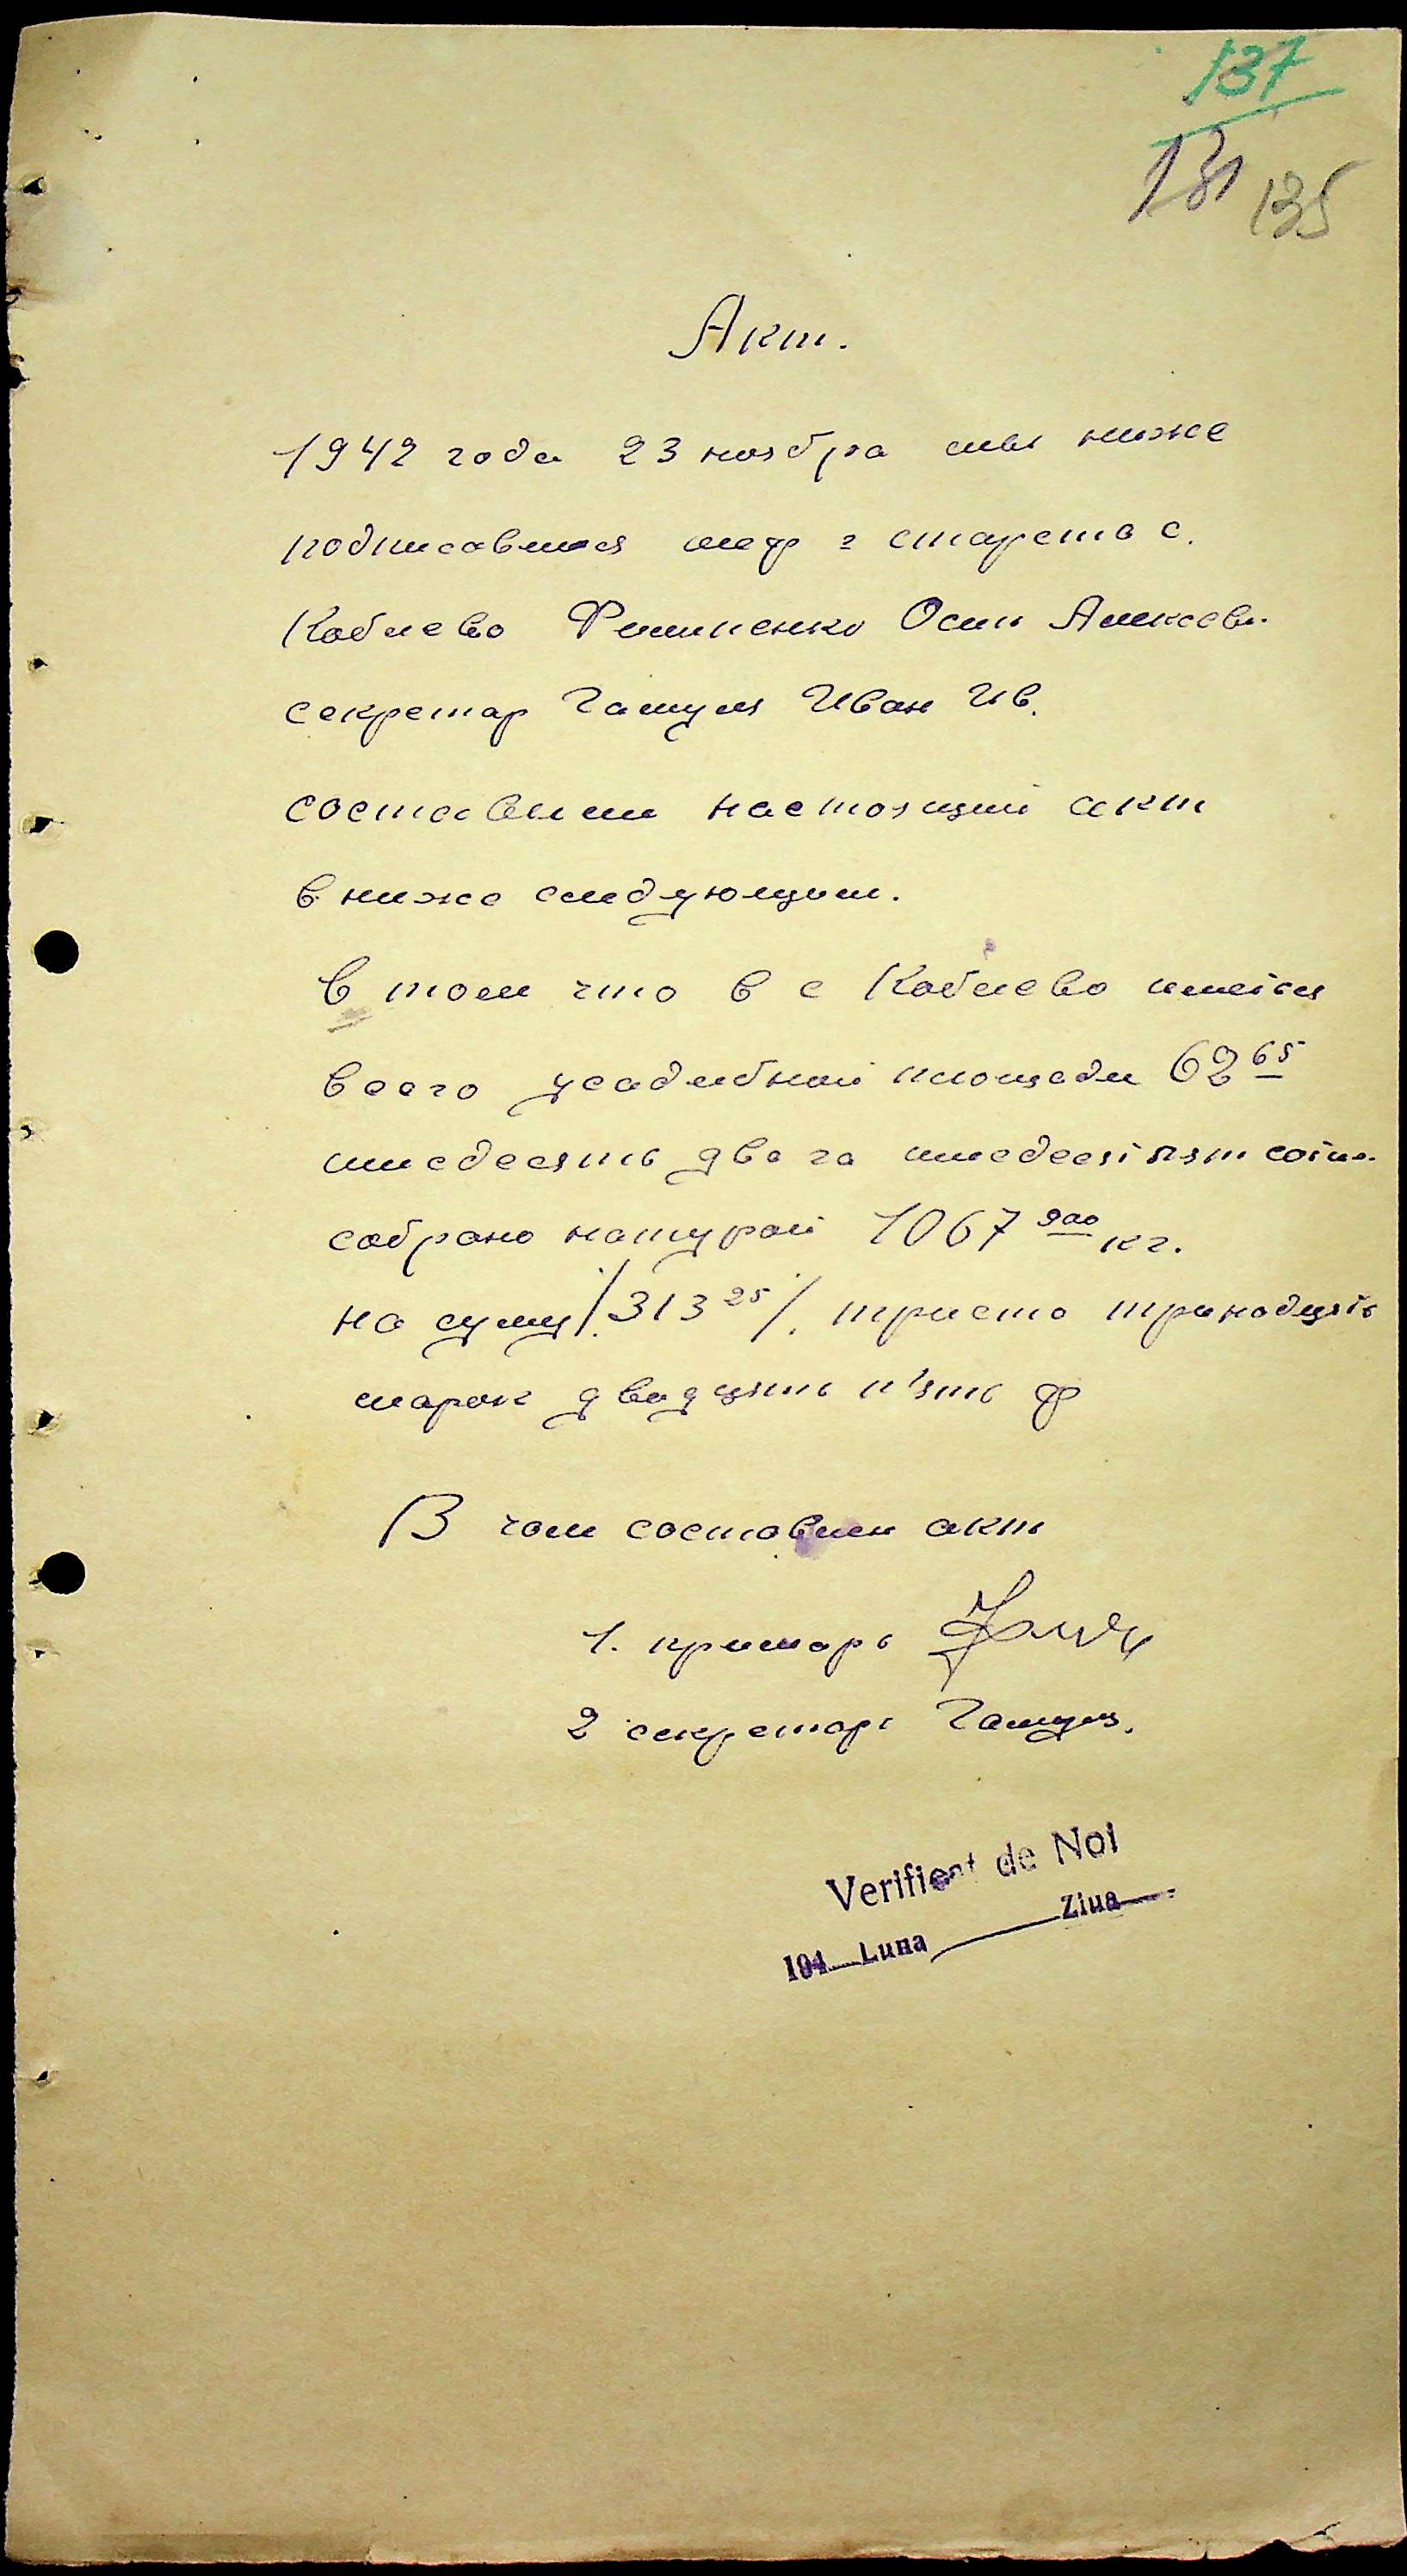 137
131 135
Акт.
1942 года 23 ноября мы ниже
подписавшися шеф г старста с.
Коблево Филипенко Осип Алексев.
секретар Гамуля Иван Ив.
составили настоящий акт
в ниже следующим.
В том что в с Коблево имеіся
всего усадибной площади 62 65
шисдесять два га шисдесят пят соіи.
собрано натурой 1067 900 кг.
на суму /.313 25/. тристо тринодцать
марок двадцять п'ять ф
В чом составлен акт
1. примарь
2 секретарь Гамуля.
Verificat de Noi
194 Luna Ziua